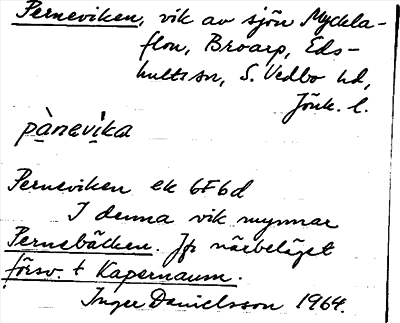 Perneviken, vik av sjön Myckla-
flon, Broarp, Eds-
hults sn, S. Vedbo hd,
Jönk. l.
pànevi̱ka
Perneviken ek 6F6d
I denna vik mynnar
Pernebäcken. Jfr närbeläget
försv. t Kapernaum.
Inger Danielsson 1964.